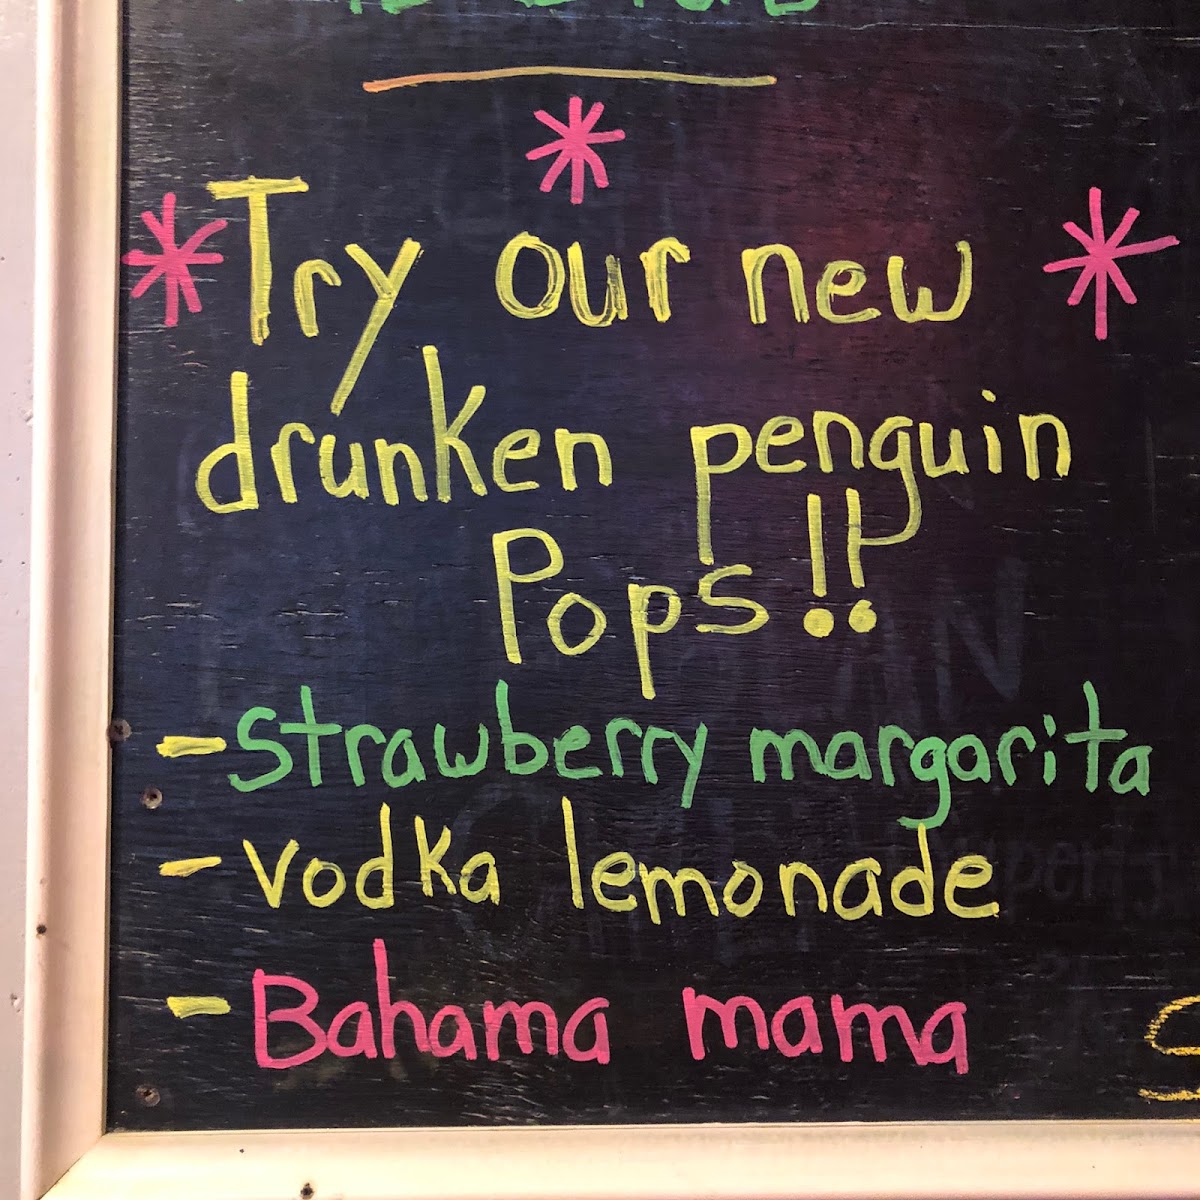 Try our new
drunken penguin
Pops!!
- strawberry margarita
- vodka lemonade
- Bahama mama